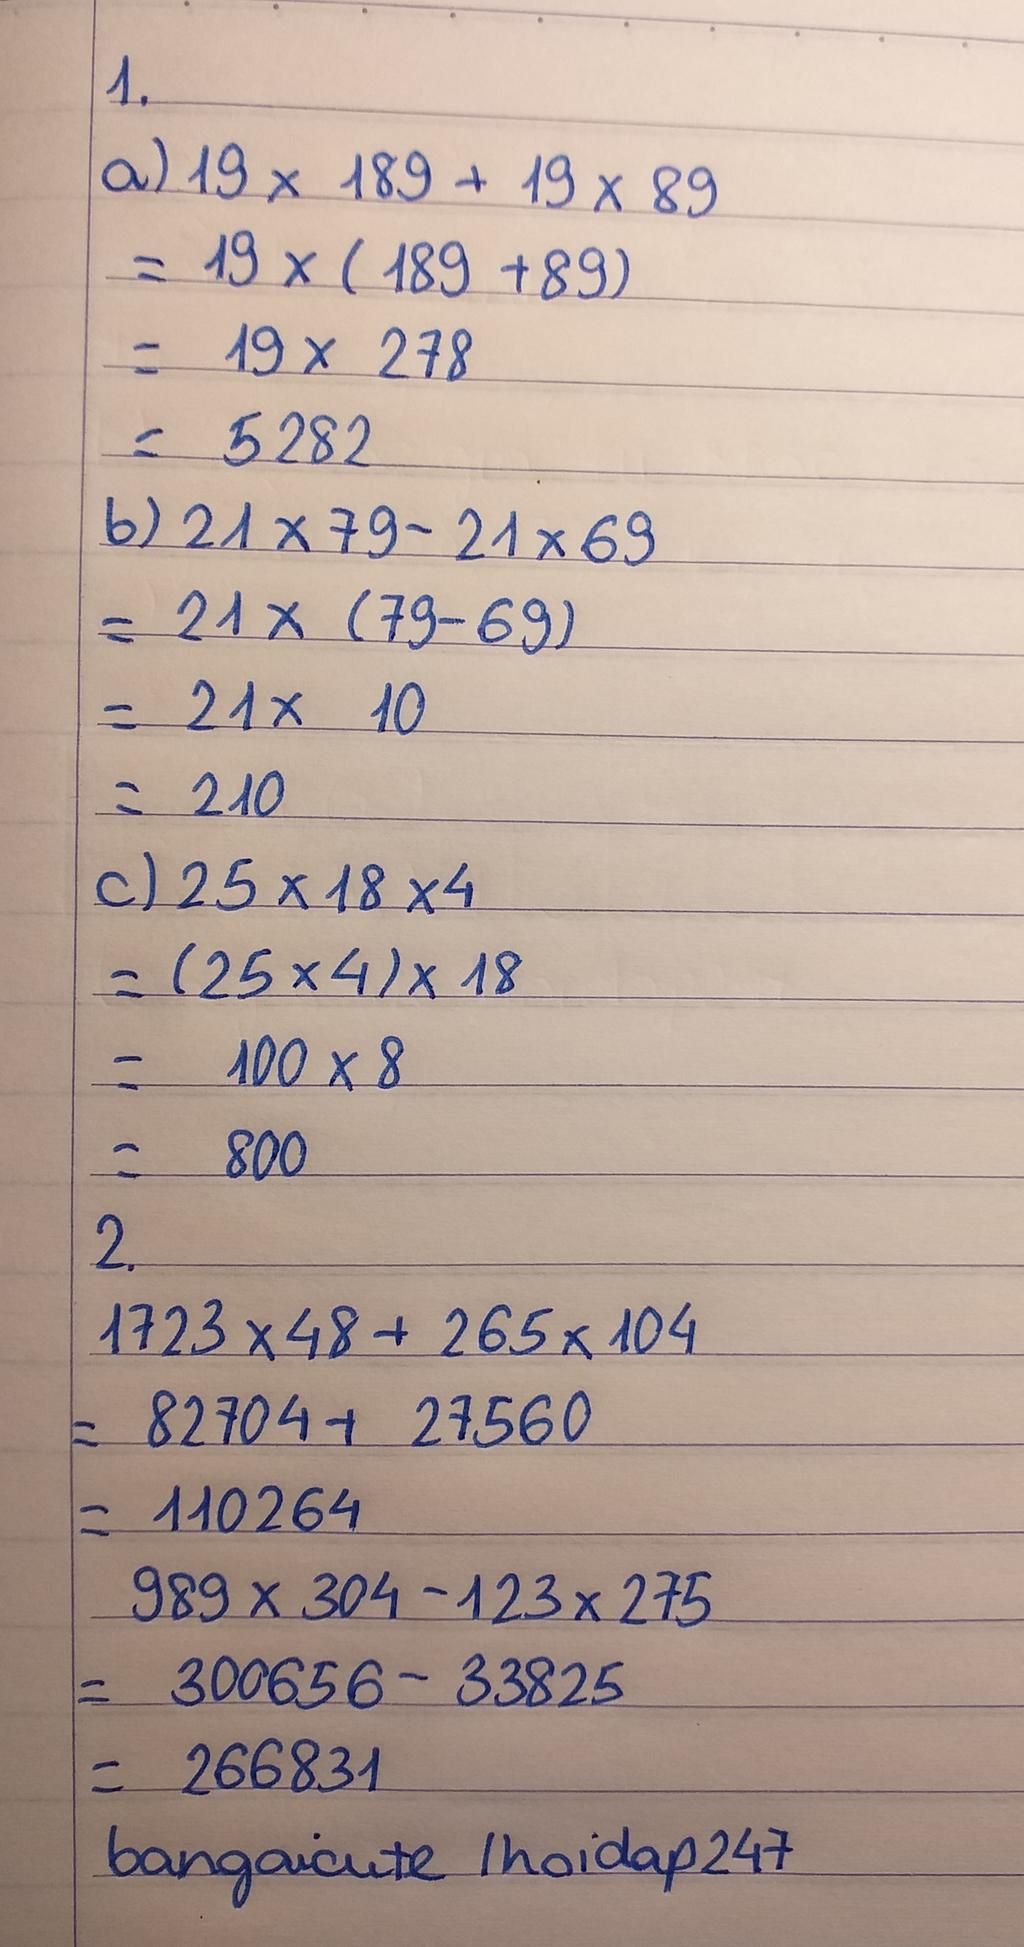 1.
a) 19 x 189 + 19 x 89
= 19 x (189 + 89)
= 19 x 278
= 5282
b) 21 x 79 - 21 x 69
= 21 x (79 - 69)
= 21 x 10
= 210
c) 25 x 18 x 4
= (25 x 4) x 18
= 100 x 8
= 800
2.
1723 x 48 + 265 x 104
= 82704 + 27560
= 110264
989 x 304 - 123 x 275
= 300656 - 33825
= 266831
bangaicute /hoidap247